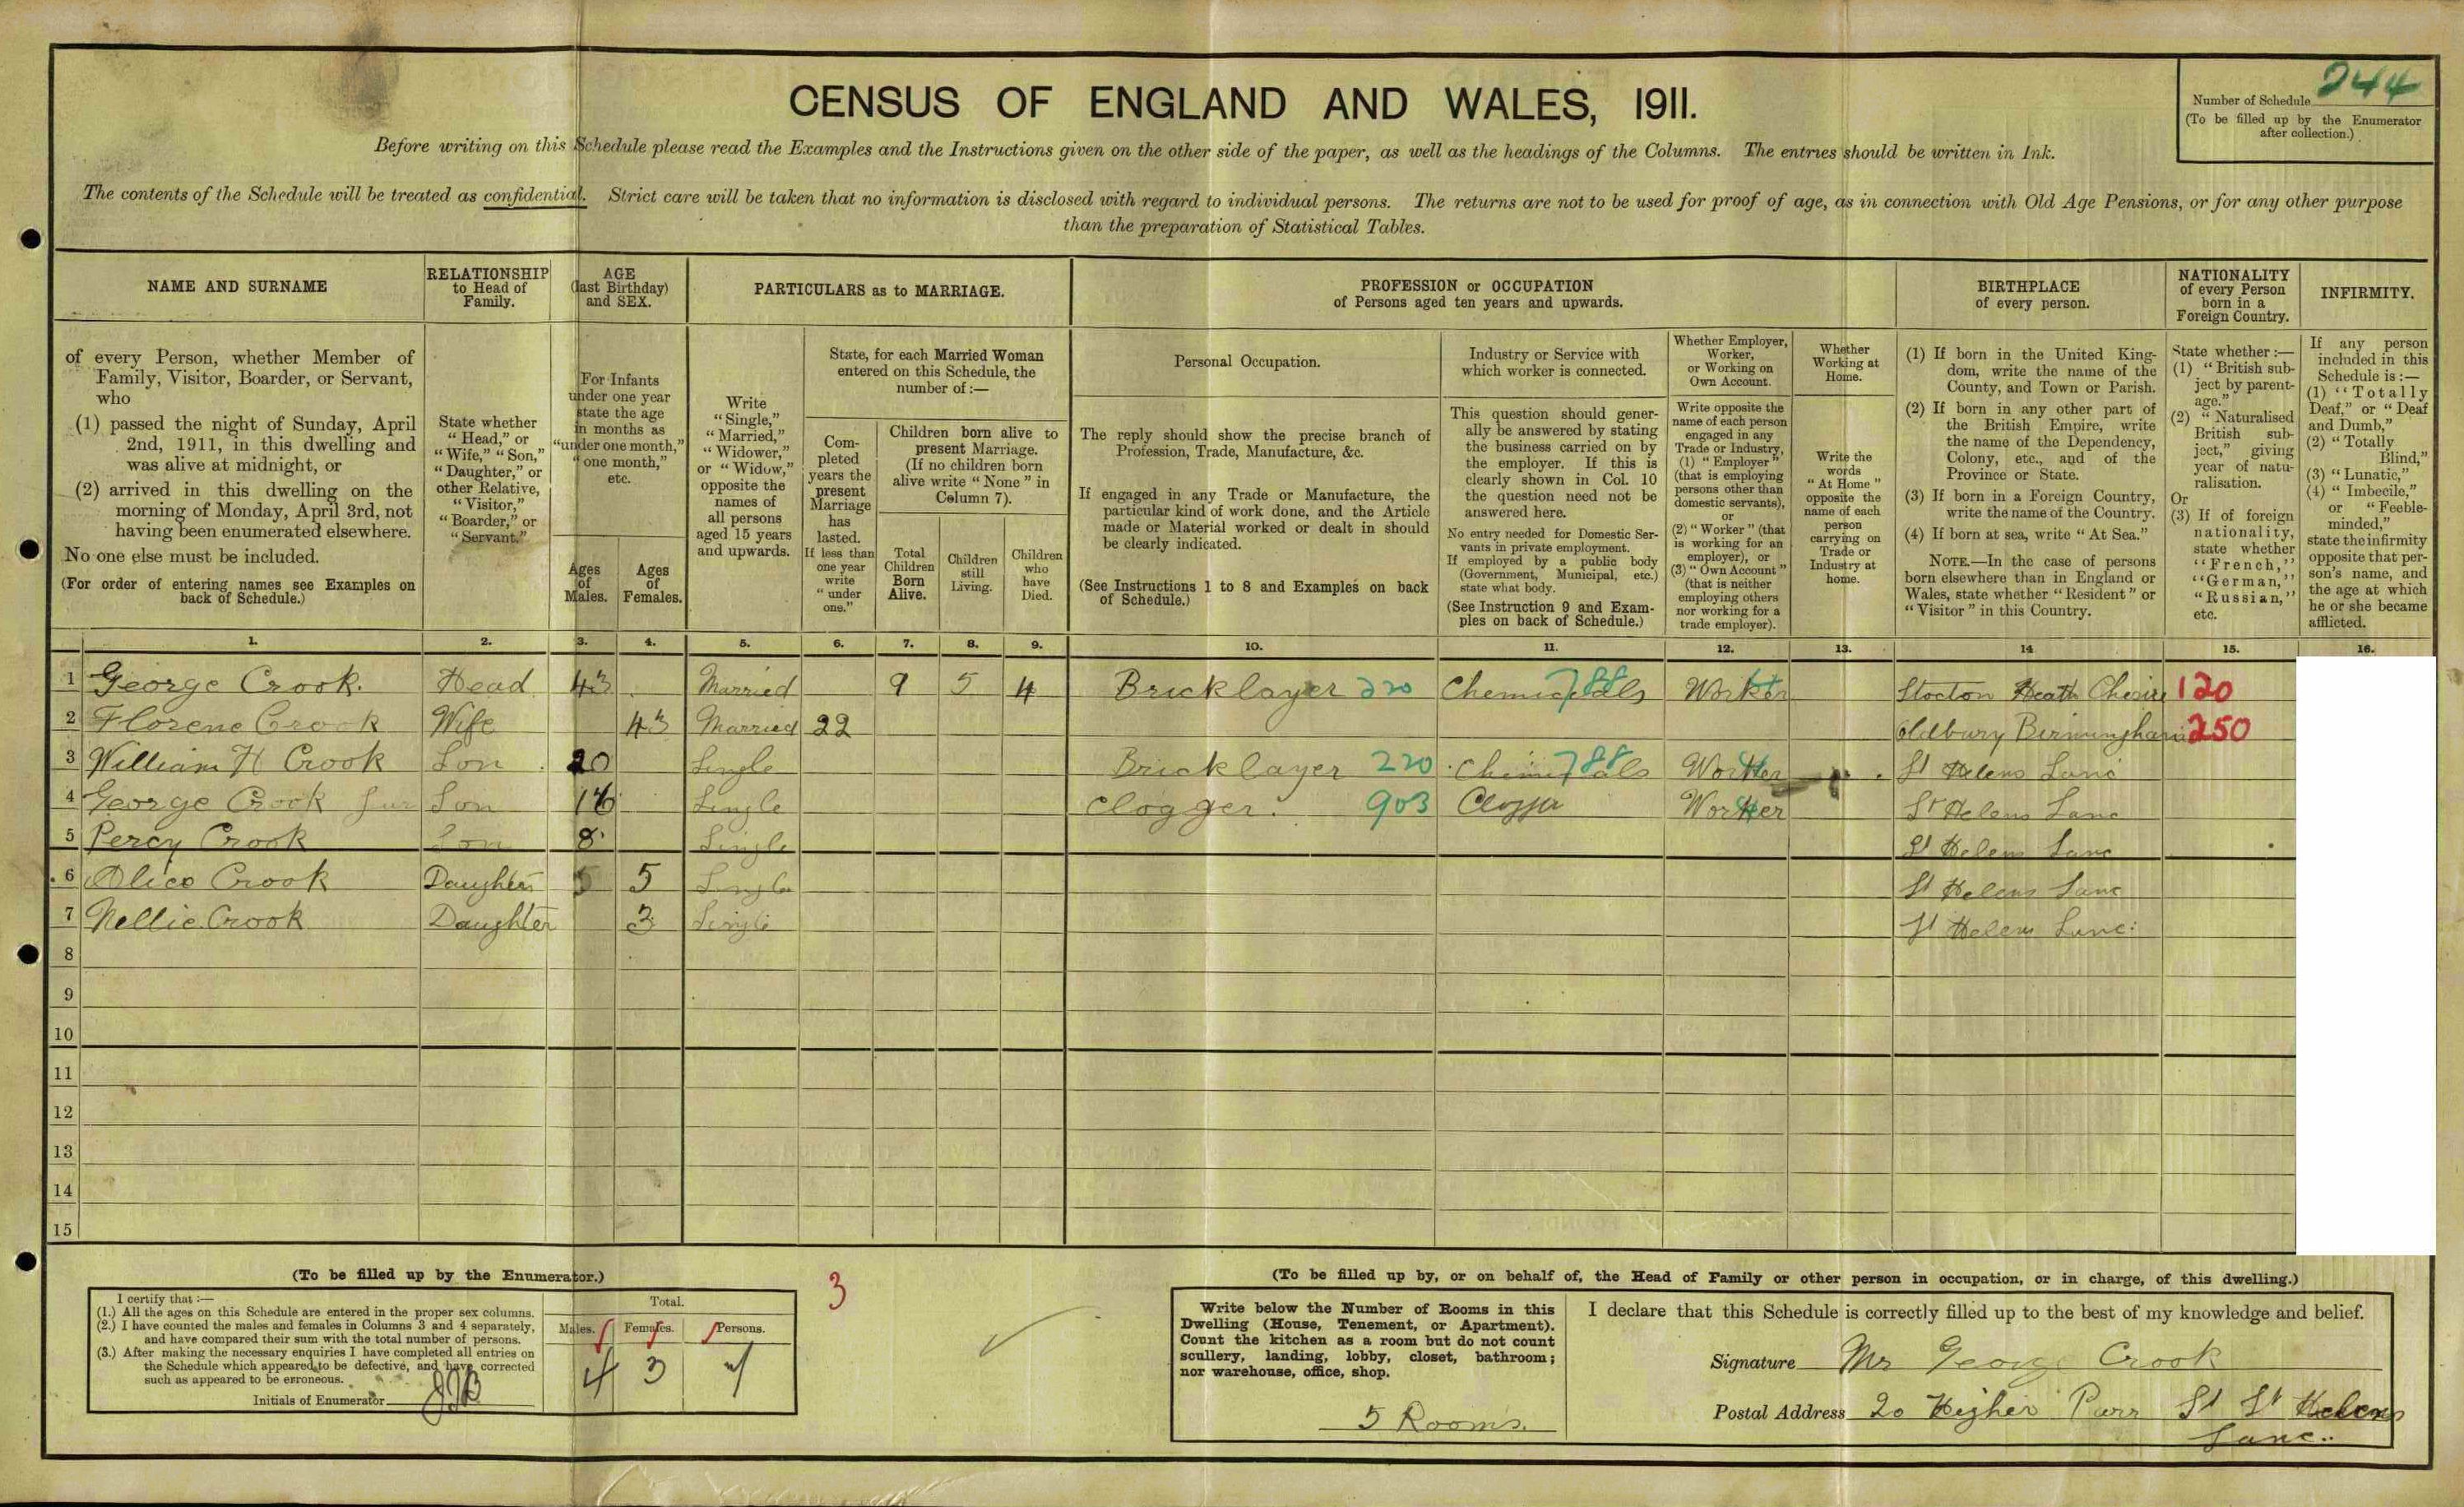 CENSUS OF ENGLAND AND WALES, 1911.
Number of Schedule 244
(To be filled up by the Enumerator after collection.)
Before writing on this Schedule please read the Examples and the Instructions given on the other side of the paper, as well as the headings of the Columns. The entries should be written in Ink.
The contents of the Schedule will be treated as confidential. Strict care will be taken that no information is disclosed with regard to individual persons. The returns are not to be used for proof of age, as in connection with Old Age Pensions, or for any other purpose
than the preparation of Statistical Tables.
NAME AND SURNAME
of every Person, whether Member of
Family, Visitor, Boarder, or Servant,
who
(1) passed the night of Sunday, April
2nd, 1911, in this dwelling and
was alive at midnight, or
(2) arrived in this dwelling on the
morning of Monday, April 3rd, not
having been enumerated elsewhere.
No one else must be included.
(For order of entering names see Examples on
back of Schedule.)
RELATIONSHIP
to Head of
Family.
State whether
"Head," or
"Wife," "Son,"
"Daughter," or
other Relative,
"Visitor,"
"Boarder," or
"Servant."
AGE
(last Birthday)
and SEX.
For Infants
under one year
state the age
in months as
"under one month,"
"one month,"
etc.
Ages
of
Males.
Ages
of
Females.
PARTICULARS as to MARRIAGE.
Write
"Single,"
"Married,"
"Widower,"
or "Widow,"
opposite the
names of
all persons
aged 15 years
and upwards.
State, for each Married Woman
entered on this Schedule, the
number of:—
Com-
pleted
years the
present
Marriage
has
lasted.
If less than
one year
write
"under
one."
Children born alive to
present Marriage.
(If no children born
alive write "None" in
Column 7).
Total
Children
Born
Alive.
Children
still
Living.
Children
who
have
Died.
PROFESSION or OCCUPATION
of Persons aged ten years and upwards.
Personal Occupation.
The reply should show the precise branch of
Profession, Trade, Manufacture, &c.
If engaged in any Trade or Manufacture, the
particular kind of work done, and the Article
made or Material worked or dealt in should
be clearly indicated.
(See Instructions 1 to 8 and Examples on back
of Schedule.)
Industry or Service with
which worker is connected.
This question should gener-
ally be answered by stating
the business carried on by
the employer. If this is
clearly shown in Col. 10
the question need not be
answered here.
No entry needed for Domestic Ser-
vants in private employment.
If employed by a public body
(Government, Municipal, etc.)
state what body.
(See Instruction 9 and Exam-
ples on back of Schedule.)
Whether Employer,
Worker,
or Working on
Own Account.
Write opposite the
name of each person
engaged in any
Trade or Industry,
(1) "Employer"
(that is employing
persons other than
domestic servants),
or
(2) "Worker" (that
is working for an
employer), or
(3) "Own Account"
(that is neither
employing others
nor working for a
trade employer).
Whether
Working at
Home.
Write the
words
"At Home"
opposite the
name of each
person
carrying on
Trade or
Industry at
home.
BIRTHPLACE
of every person.
(1) If born in the United King-
dom, write the name of the
County, and Town or Parish.
(2) If born in any other part of
the British Empire, write
the name of the Dependency,
Colony, etc., and of the
Province or State.
(3) If born in a Foreign Country,
write the name of the Country.
(4) If born at sea, write "At Sea."
NOTE.—In the case of persons
born elsewhere than in England or
Wales, state whether "Resident" or
"Visitor" in this Country.
NATIONALITY
of every Person
born in a
Foreign Country.
State whether:—
(1) "British sub-
ject by parent-
age."
(2) "Naturalised
British sub-
ject," giving
year of natu-
ralisation.
Or
(3) If of foreign
nationality,
state whether
"French,"
"German,"
"Russian,"
etc.
INFIRMITY.
If any person
included in this
Schedule is:—
(1) "Totally
Deaf," or "Deaf
and Dumb,"
(2) "Totally
Blind,"
(3) "Lunatic,"
(4) "Imbecile,"
or "Feeble-
minded,"
state the infirmity
opposite that per-
son's name, and
the age at which
he or she became
afflicted.
1. 2. 3. 4. 5. 6. 7. 8. 9. 10. 11. 12. 13. 14 15. 16.
1 George Crook. Head 43 Married 9 5 4 Bricklayer 220 Chemicals 788 Worker Stocton Heath Chesire 120
2 Florene Crook Wife 43 Married 22 Oldbury Birmingham 250
3 William H Crook Son 20 Single Bricklayer 220 Chemicals 788 Worker St Helens Lanc
4 George Crook Jur Son 16 Single Clogger. 903 Worker St Helens Lanc
5 Percy Crook Son 8 Single St Helens Lanc
6 Alice Crook Daughter 5 Single St Helens Lanc
7 Nellie Crook Daughter 3 Single St Helens Lanc.
8
9
10
11
12
13
14
15
(To be filled up by the Enumerator.)
I certify that:—
(1.) All the ages on this Schedule are entered in the proper sex columns.
(2.) I have counted the males and females in Columns 3 and 4 separately,
and have compared their sum with the total number of persons.
(3.) After making the necessary enquiries I have completed all entries on
the Schedule which appeared to be defective, and have corrected
such as appeared to be erroneous.
Initials of Enumerator JJB
Total.
Males. Females. Persons.
4 3 7
3
(To be filled up by, or on behalf of, the Head of Family or other person in occupation, or in charge, of this dwelling.)
Write below the Number of Rooms in this
Dwelling (House, Tenement, or Apartment).
Count the kitchen as a room but do not count
scullery, landing, lobby, closet, bathroom;
nor warehouse, office, shop.
5 Rooms.
I declare that this Schedule is correctly filled up to the best of my knowledge and belief.
Signature Mr George Crook
Postal Address 20 Higher Parr St St Helens
Lanc..